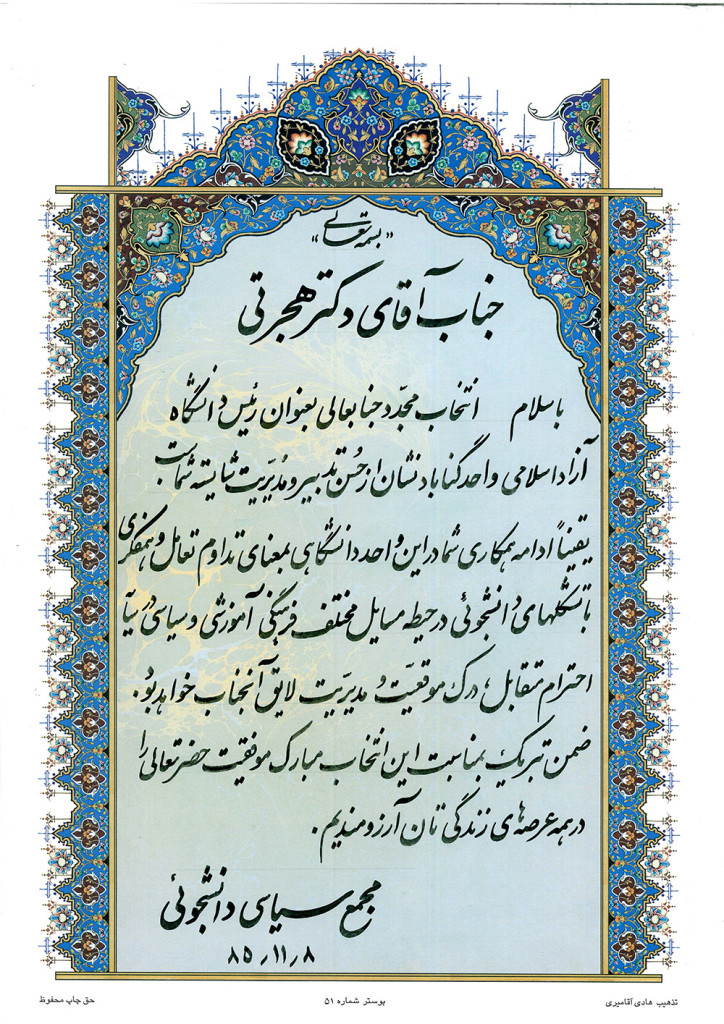 «بسمه تعالی»
جناب آقای دکتر هجرتی
با سلام انتخاب مجدد جنابعالی بعنوان رئیس دانشگاه
آزاد اسلامی واحد گناباد نشان از حُسن تدبیر و مُدیریت شایسته شماست
یقیناً ادامه همکاری شما در این واحد دانشگاهی بمعنای تداوم تعامل و همفکری
با تشکلهای دانشجوئی در حیطه مسایل مختلف فرهنگی آموزشی و سیاسی در
احترام متقابل، درک موقعیّت و مدیریّت لایق آنجناب خواهد بود.
ضمن تبریک بمناسبت این انتخاب مبارک موفقیت حضرتعالی را
در همه عرصه های زندگی تان آرزومندیم.
مجمع سیاسی دانشجوئی
۸۵/۱۱/۸
تذهیب هادی آقامیری
پوستر شماره ۵۱
حق چاپ محفوظ